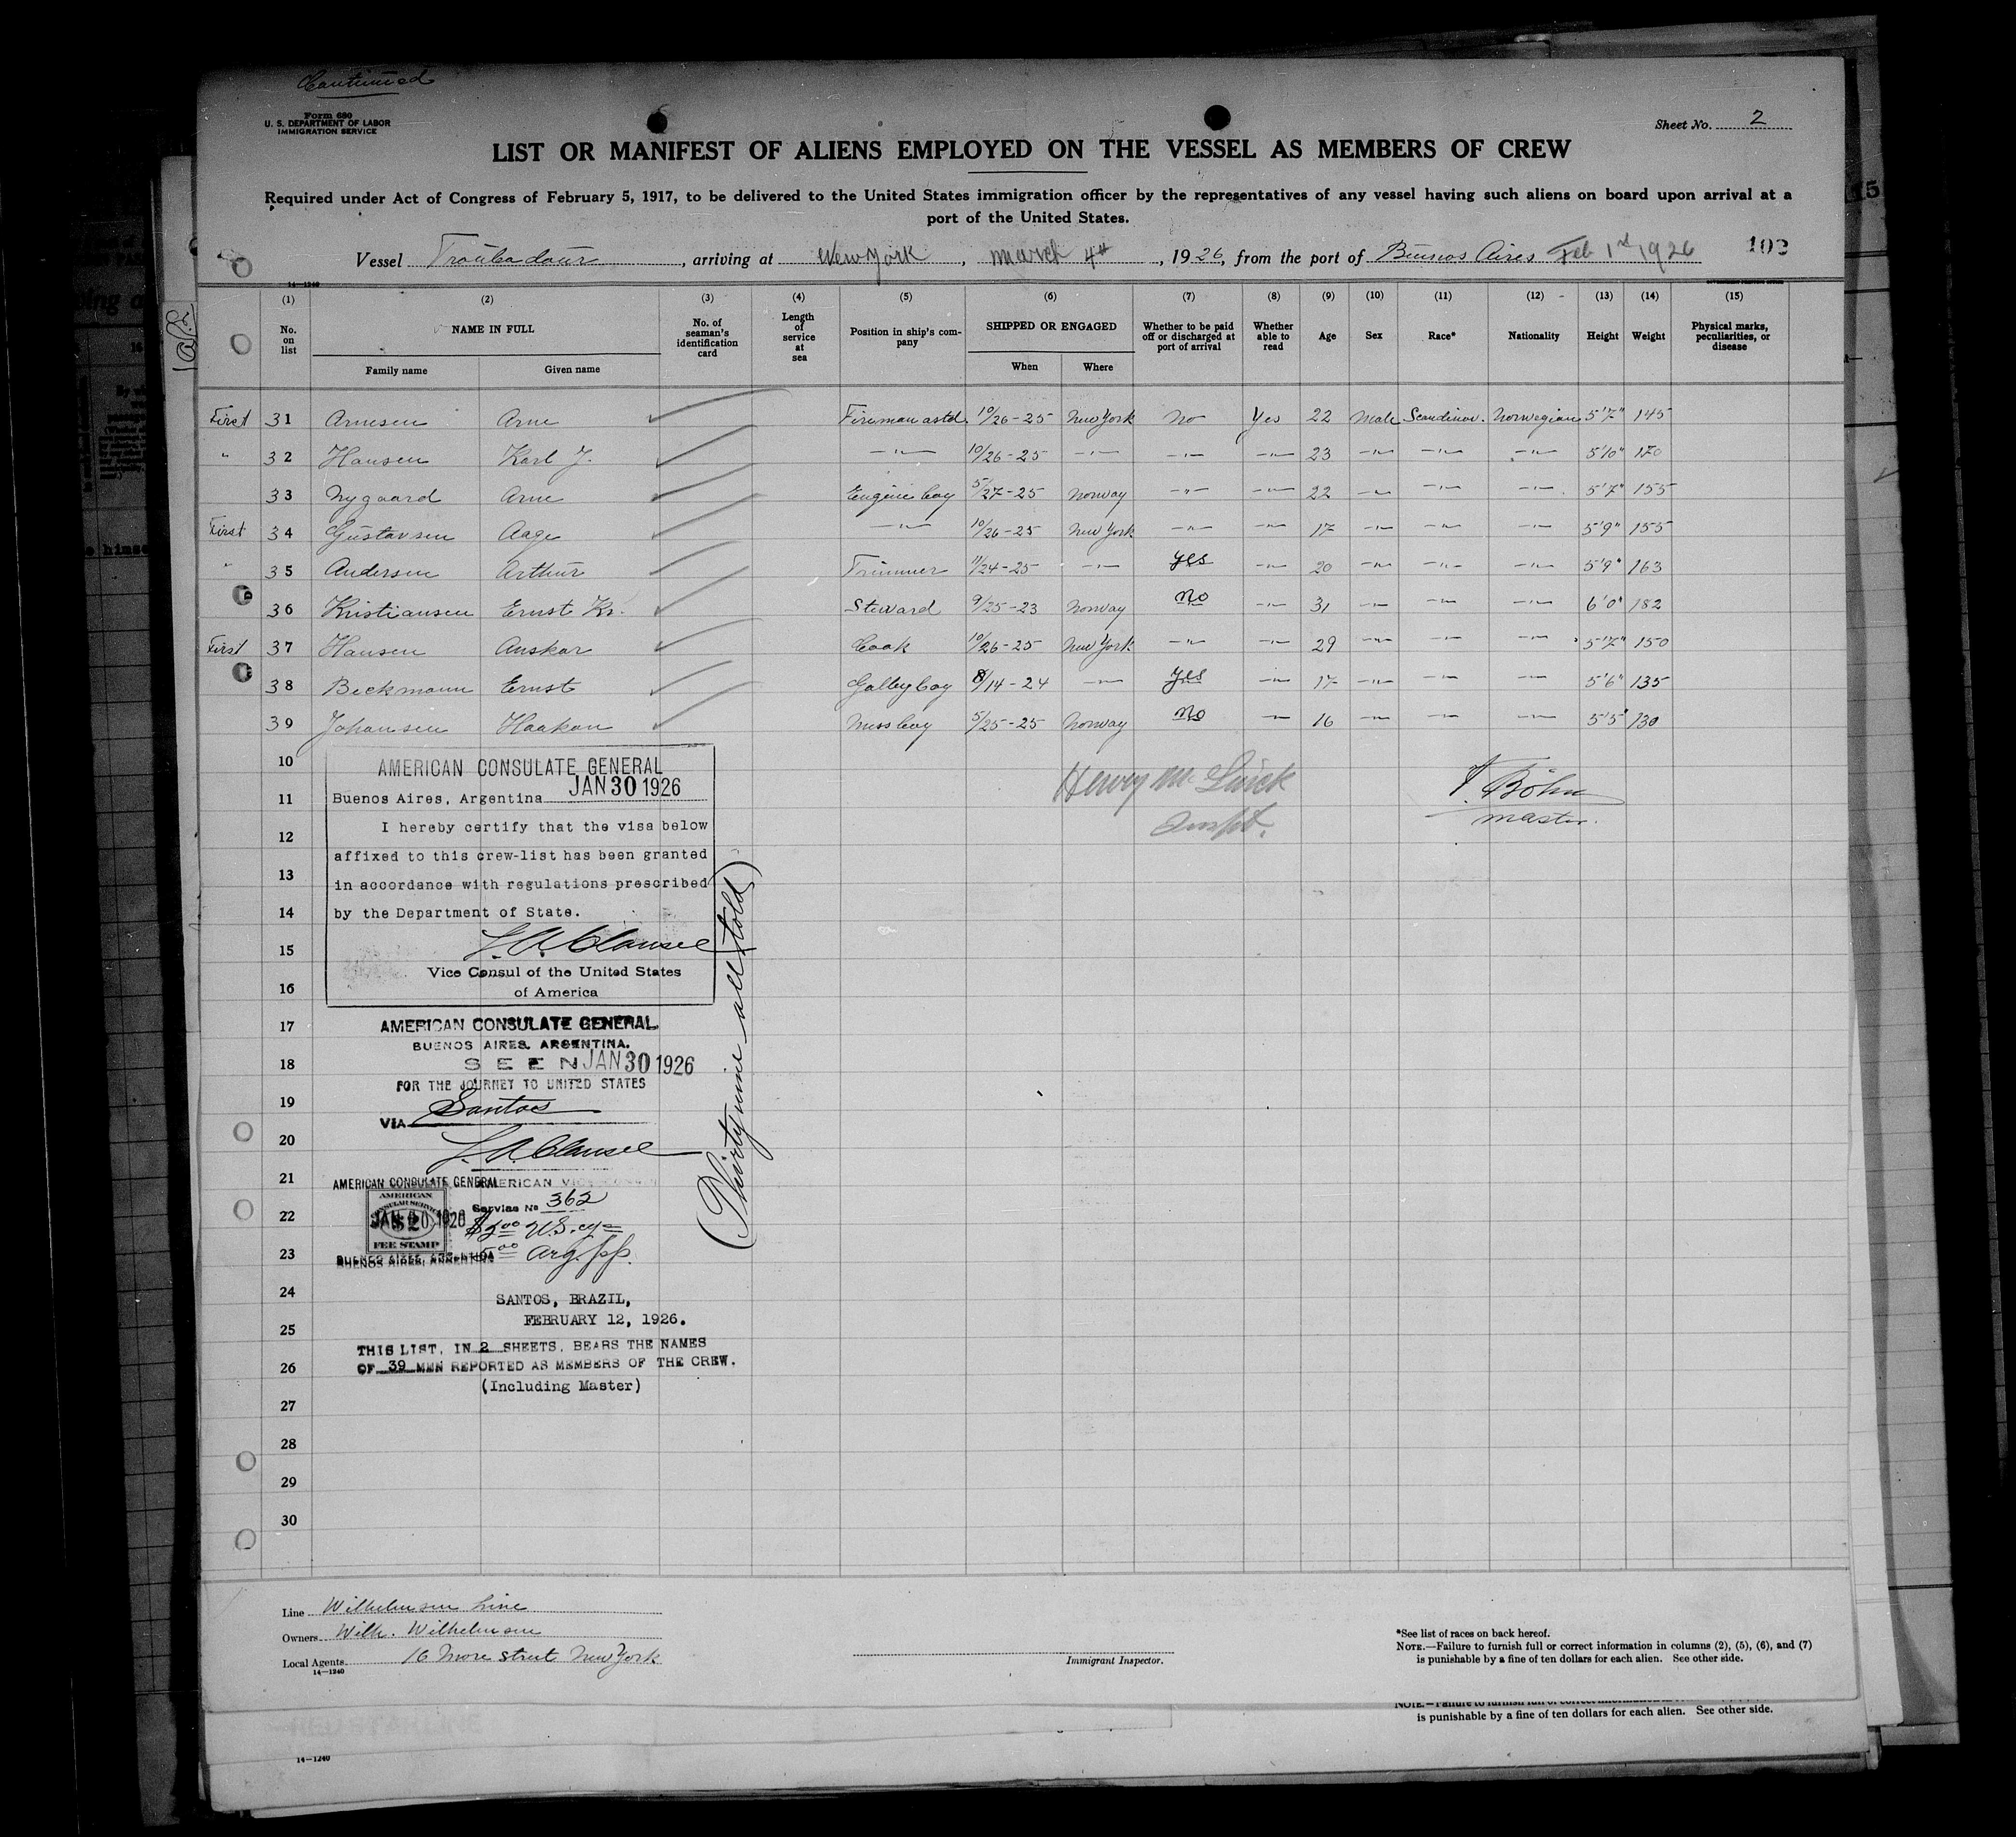 Continued
Form 680
U. S. DEPARTMENT OF LABOR
IMMIGRATION SERVICE
Sheet No. 2
LIST OR MANIFEST OF ALIENS EMPLOYED ON THE VESSEL AS MEMBERS OF CREW
Required under Act of Congress of February 5, 1917, to be delivered to the United States immigration officer by the representatives of any vessel having such aliens on board upon arrival at a
port of the United States.
Vessel Troubadour, arriving at New York, March 4th, 1926, from the port of Buenos Aires Feb 1st 1926 103
14—1240
(1) (2) (3) (4) (5) (6) (7) (8) (9) (10) (11) (12) (13) (14) (15)
No. on list NAME IN FULL Family name Given name No. of seaman's identification card Length of service at sea Position in ship's company SHIPPED OR ENGAGED When Where Whether to be paid off or discharged at port of arrival Whether able to read Age Sex Race* Nationality Height Weight Physical marks, peculiarities, or disease
First 31 Arnesen Arne Fireman astd. 10/26-25 New York No Yes 22 Male Scandinav. Norwegian 5'7" 145
" 32 Hansen Karl J. —"— 10/26-25 —"— —"— —"— 23 —"— —"— —"— 5'10" 170
33 Nygaard Arne Engine boy 5/27-25 Norway —"— —"— 22 —"— —"— —"— 5'7" 155
First 34 Gustavsen Aage —"— 10/26-25 New York —"— —"— 17 —"— —"— —"— 5'9" 155
" 35 Andersen Arthur Trimmer 11/24-25 —"— Yes —"— 20 —"— —"— —"— 5'9" 163
36 Kristiansen Ernst Kr. Steward 9/25-23 Norway No —"— 31 —"— —"— —"— 6'0" 182
First 37 Hansen Anskar Cook 10/26-25 New York —"— —"— 29 —"— —"— —"— 5'7" 150
38 Beckmann Ernst Galley boy 8/14-24 —"— Yes —"— 17 —"— —"— —"— 5'6" 135
39 Johansen Haakon Mess boy 5/25-25 Norway No —"— 16 —"— —"— —"— 5'5" 130
10
11
12
13
14
15
16
17
18
19
20
21
22
23
24
25
26
27
28
29
30
AMERICAN CONSULATE GENERAL
Buenos Aires, Argentina JAN 30 1926
I hereby certify that the visa below
affixed to this crew-list has been granted
in accordance with regulations prescribed
by the Department of State.
Vice Consul of the United States
of America
Henry
Inspt.
Böhn
master.
(Thirty nine all told)
AMERICAN CONSULATE GENERAL
BUENOS AIRES, ARGENTINA.
SEEN JAN 30 1926
FOR THE JOURNEY TO UNITED STATES
VIA Santos
AMERICAN CONSULATE GENERAL
AMERICAN VICE
AMERICAN
CONSULAR SERVICE
$2
FEE STAMP
Service No 362
U.S. cy
Arg.
BUENOS AIRES, ARGENTINA
SANTOS, BRAZIL,
FEBRUARY 12, 1926.
THIS LIST, IN 2 SHEETS, BEARS THE NAMES
OF 39 MEN REPORTED AS MEMBERS OF THE CREW.
(Including Master)
Line Wilhelmsen Line
Owners Wilh. Wilhelmsen
Local Agents 16 More Street New York
14—1240
Immigrant Inspector.
*See list of races on back hereof.
NOTE.—Failure to furnish full or correct information in columns (2), (5), (6), and (7)
is punishable by a fine of ten dollars for each alien. See other side.
is punishable by a fine of ten dollars for each alien. See other side.
14—1240